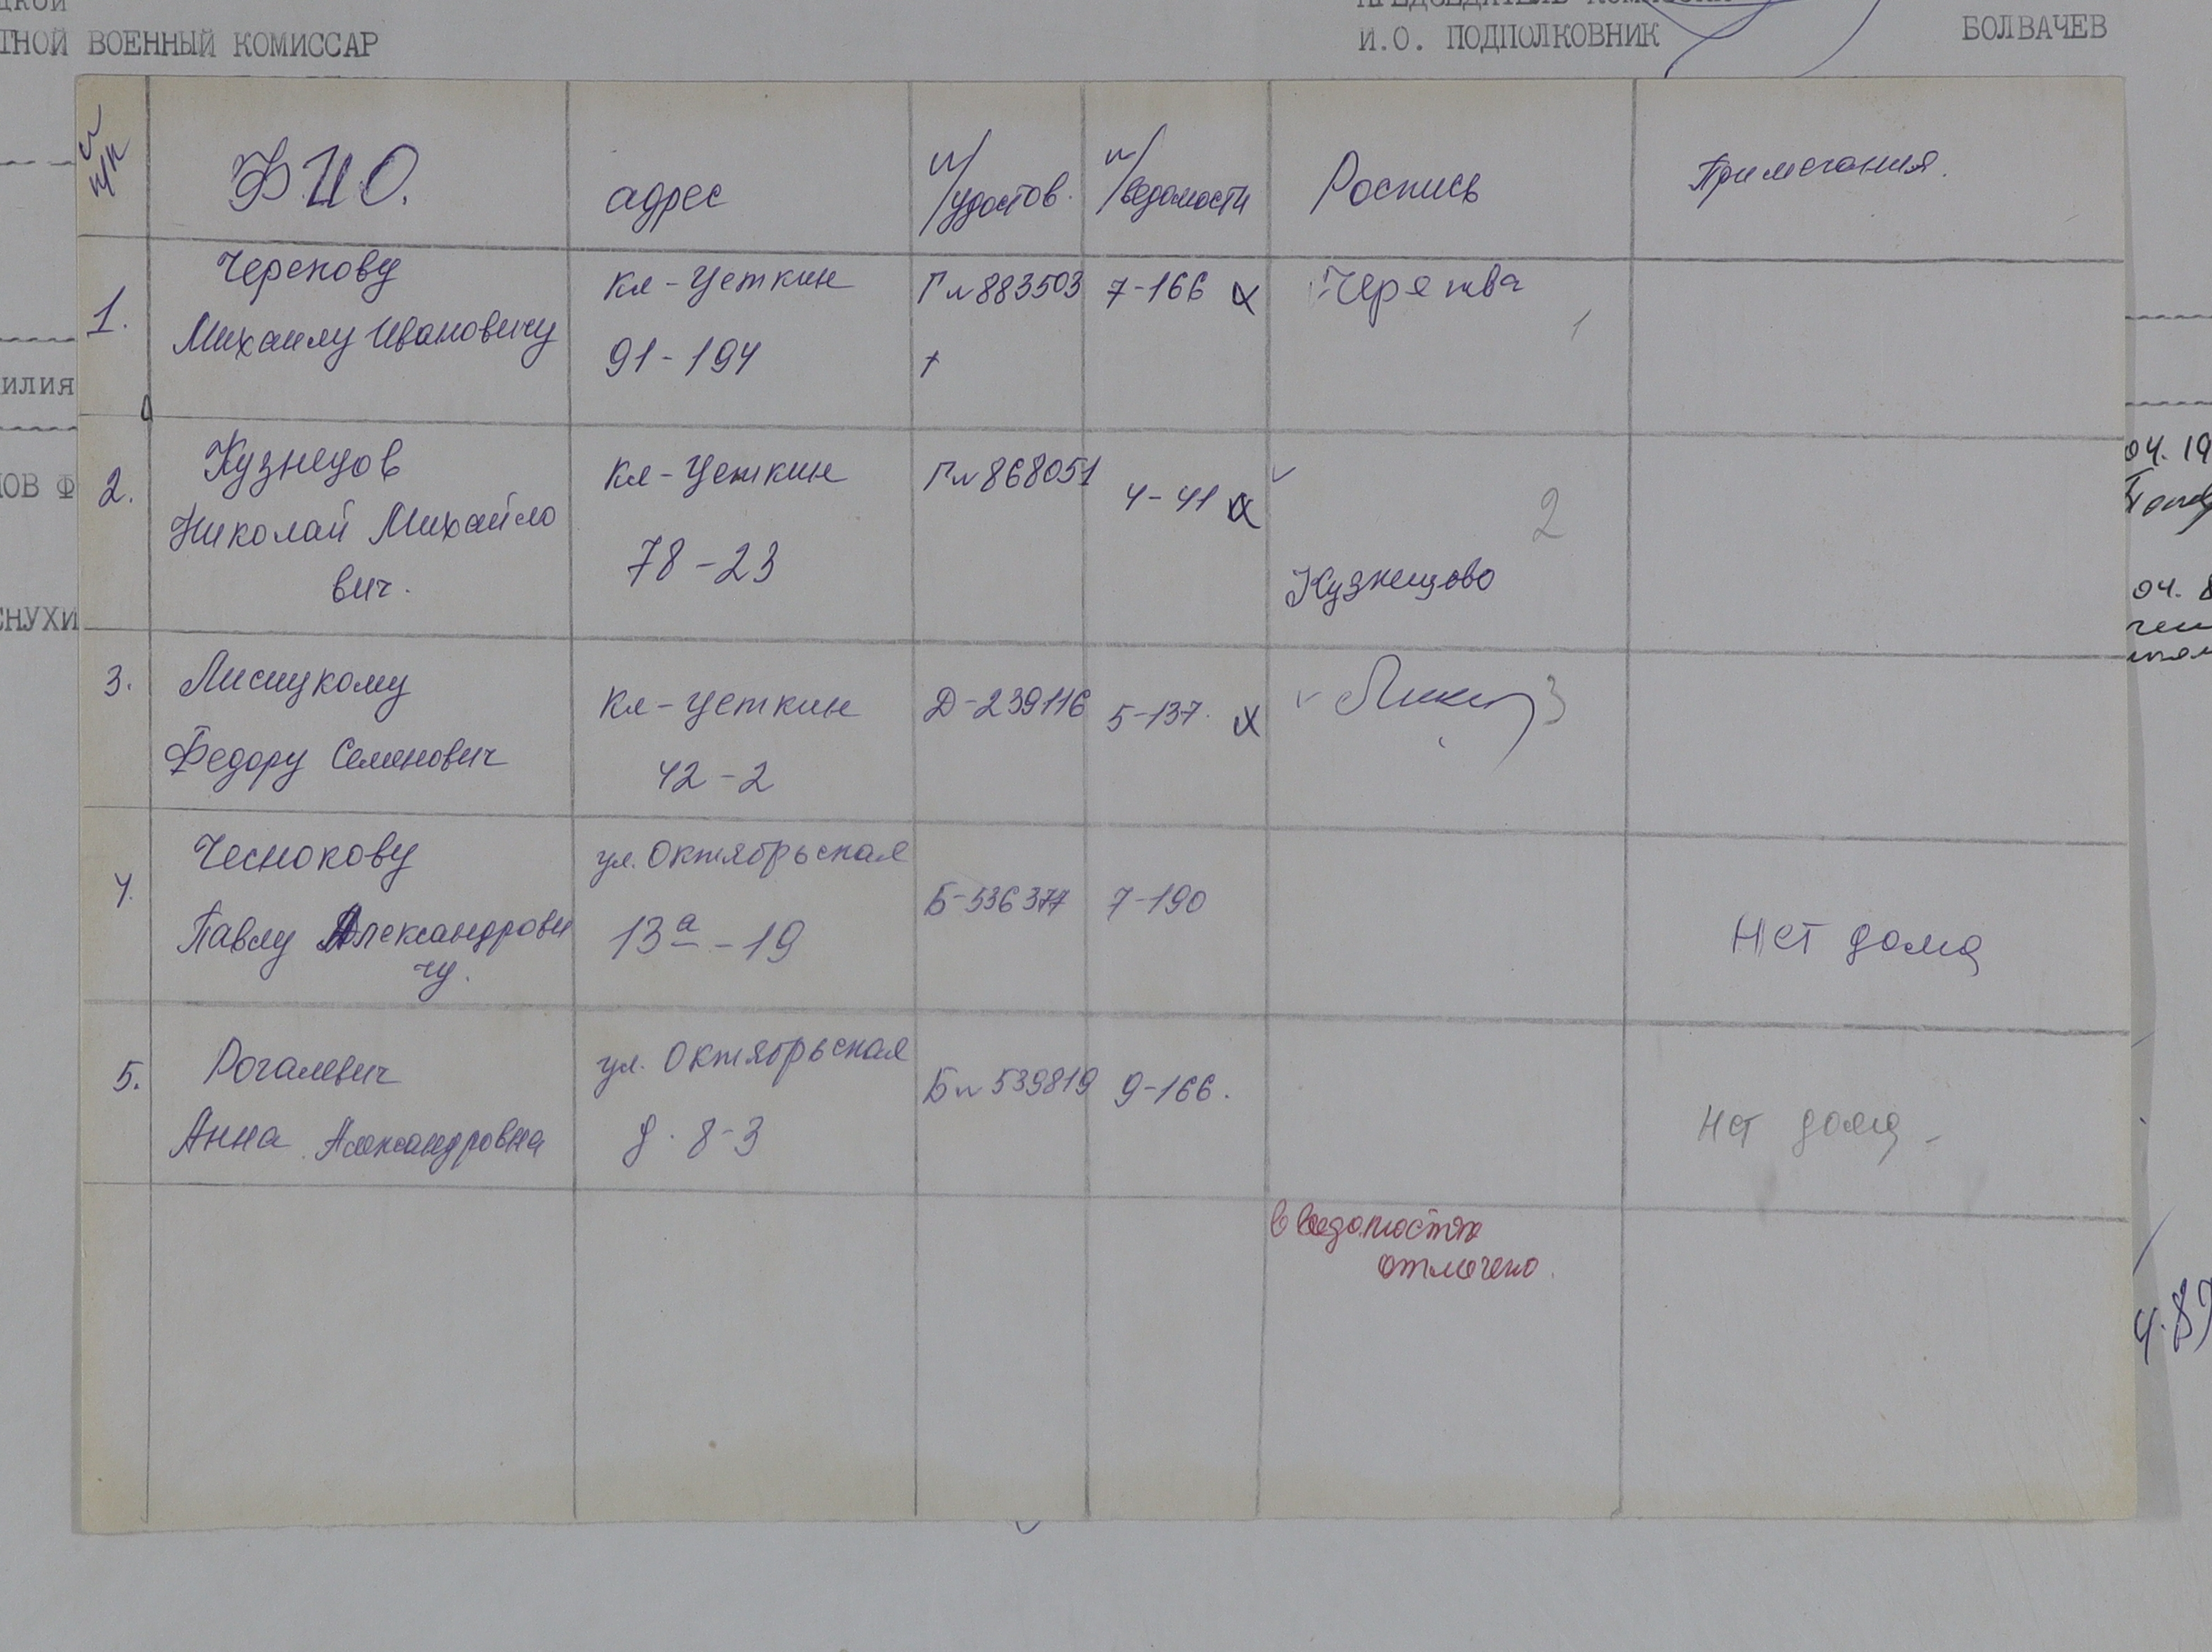 ТНОЙ ВОЕННЫЙ КОМИССАР
И.О. ПОДПОЛКОВНИК
БОЛВАЧЕВ
№ п/п
ФИО.
адрес
№/удостов.
№/ведомости
Роспись
Примечания.
1.
Черепову
Михаилу Ивановичу
Кл-Цеткин
91-194
Г№883503
+
7-166 х
1
2.
Кузнецов
Николай Михайло
вич.
Кл-Цеткин
78-23
Г№868051
4-41 х
Кузнецово
2
3.
Лисицкому
Федору Семенович
Кл-Цеткин
42-2
Д-239116
5-137. х
3
4.
Чеснокову
Павлу Александрови
чу.
ул. Октябрьская
13а-19
Б-536377
7-190
Нет дома
5.
Рогалевич
Анна Александровна
ул. Октябрьская
д. 8-3
Б№539819
9-166.
Нет дома
в ведомостях
отмечено.
илия
ОВ Ф
СНУХИ
04. 19
04. 8
4.87